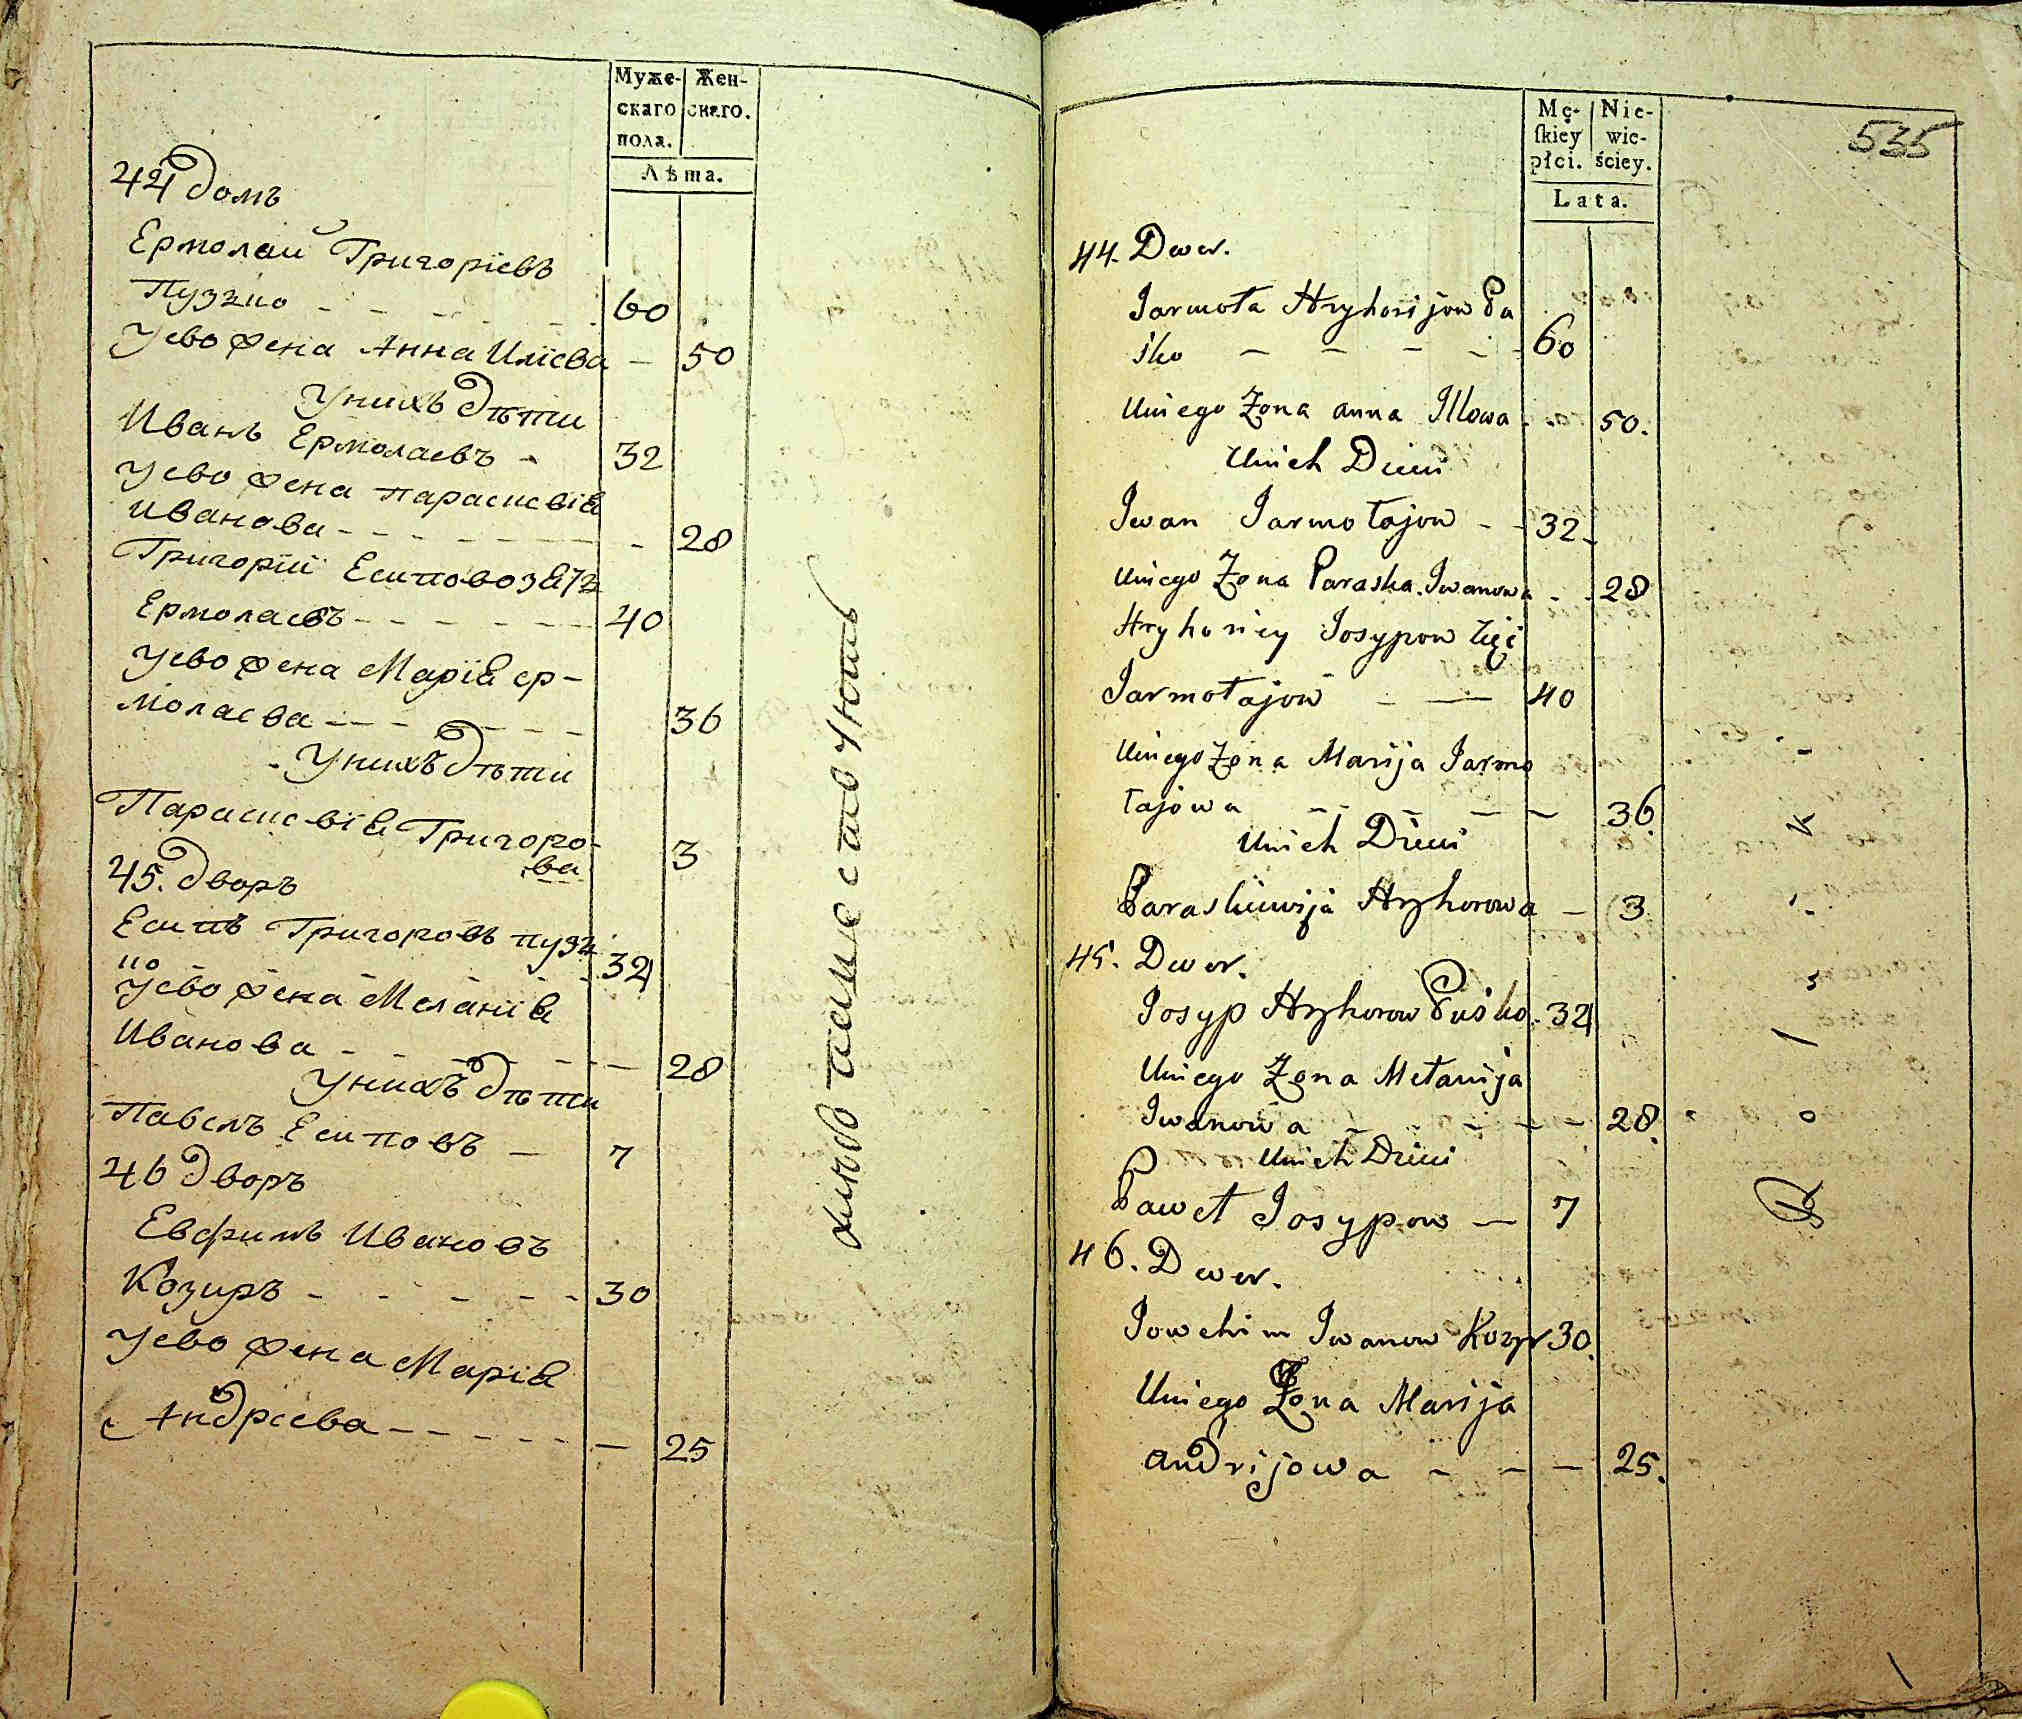 Муже- Жен-
скаго скаго.
пола.
Лѣта.
44 домъ
Ермолай Григоріевъ
Пузько 60
Уево жена Анна Иліева 50
Унихъ дѣти
Иванъ Ермолаевъ 32
Уево жена Параскевія
Иванова 28
Григорій Есипово зять
Ермолаевъ 40
Уево жена Марія Ер-
молаева 36
Унихъ дѣти
Параскевія Григоро-
ва 3
45. дворъ
Есипъ Григоровъ Пузь
ко 32
Уево жена Меланія
Иванова 28
Унихъ дѣти
Павелъ Есиповъ 7
46 дворъ
Евфимъ Ивановъ
Козиръ 30
Уево жена Марія
Андрѣева 25
535
Mę- Nie-
skiey wie-
płci. ściey.
Lata.
44. Dwor.
Jarmoła Hryhorijow Pu
śko 60
Uniego Żona anna Illowa 50.
Unich Dzieci
Jwan Jarmołajow 32
Uniego Żona Paraska Jwanowa 28
Hryhoriey Josypow Zięć
Jarmołajow 40
Uniego Żona Marija Jarmo
łajowa 36
Unich Dzieci
Paraskiewija Hryhorowa 3
45. Dwor.
Josyp Hryhorow Puśko 32
Uniego Żona Mełanija
Jwanowa 28.
Unich Dzieci
Paweł Josypow 7
46. Dwor.
Jowchim Jwanow Kozyr 30.
Uniego Żona Marija
andrijowa 25.